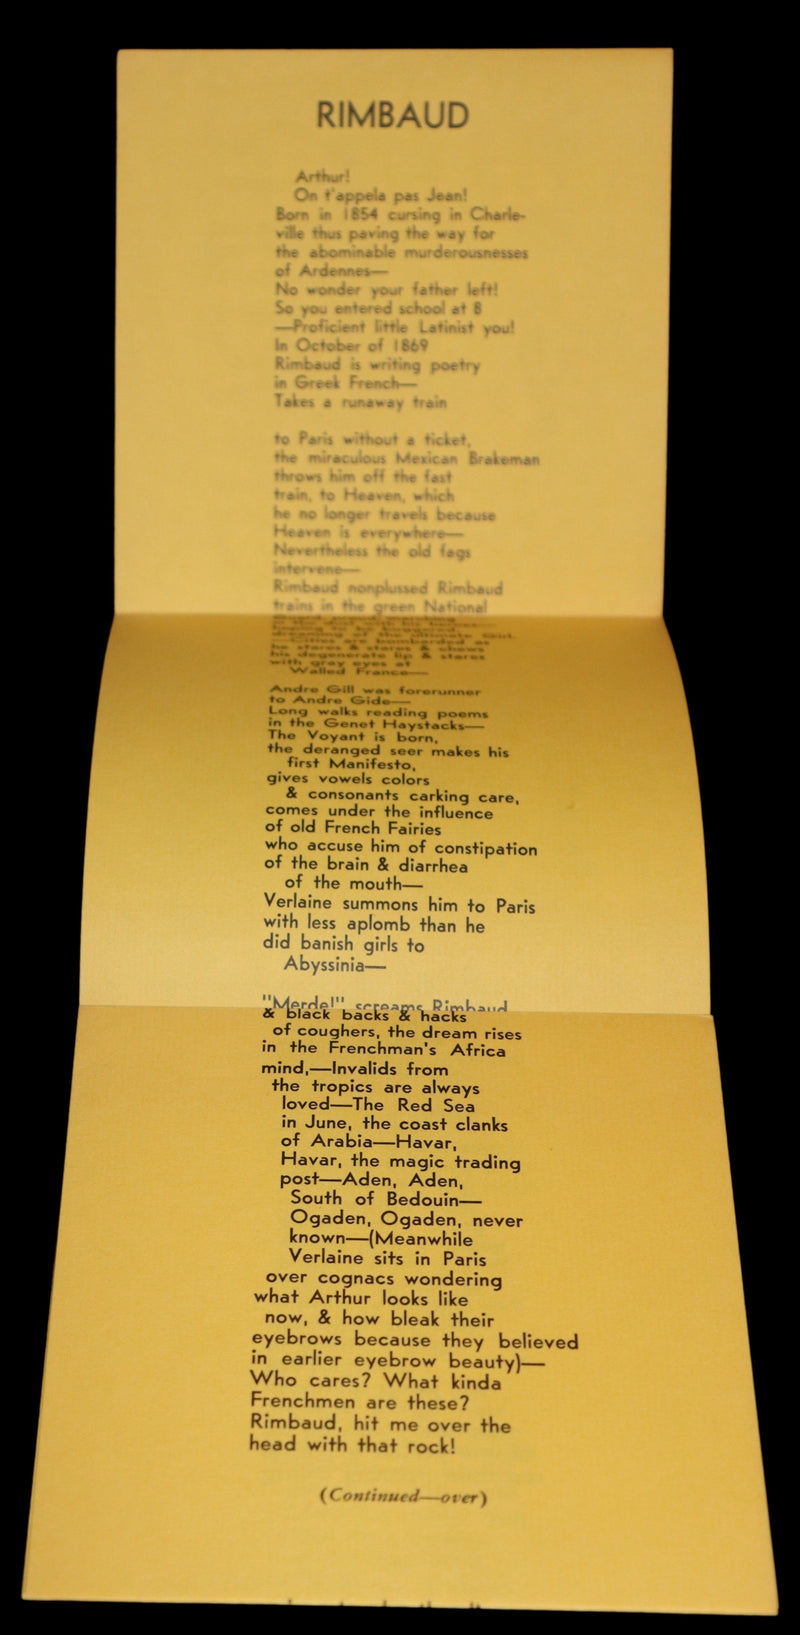 RIMBAUD
Arthur!
On t'appela pas Jean!
Born in 1854 cursing in Charle-
ville thus paving the way for
the abominable murderousnesses
of Ardennes—
No wonder your father left!
So you entered school at 8
—Proficient little Latinist you!
In October of 1869
Rimbaud is writing poetry
in Greek French—
Takes a runaway train
to Paris without a ticket,
the miraculous Mexican Brakeman
throws him off the fast
train, to Heaven, which
he no longer travels because
Heaven is everywhere—
Nevertheless the old fags
intervene—
Rimbaud nonplussed Rimbaud
trains in the green National
Guard, proud, marching
in the dust with his heroes—
hoping to be buggered,
dreaming of the ultimate Girl.
—Cities are bombarded as
he stares & stares & chews
his degenerate lip & stares
with gray eyes at
Walled France—
Andre Gill was forerunner
to Andre Gide—
Long walks reading poems
in the Genet Haystacks—
The Voyant is born,
the deranged seer makes his
first Manifesto,
gives vowels colors
& consonants carking care,
comes under the influence
of old French Fairies
who accuse him of constipation
of the brain & diarrhea
of the mouth—
Verlaine summons him to Paris
with less aplomb than he
did banish girls to
Abyssinia—
"Merde!" screams Rimbaud
& black backs & hacks
of coughers, the dream rises
in the Frenchman's Africa
mind,—Invalids from
the tropics are always
loved—The Red Sea
in June, the coast clanks
of Arabia—Havar,
Havar, the magic trading
post—Aden, Aden,
South of Bedouin—
Ogaden, Ogaden, never
known—(Meanwhile
Verlaine sits in Paris
over cognacs wondering
what Arthur looks like
now, & how bleak their
eyebrows because they believed
in earlier eyebrow beauty)—
Who cares? What kinda
Frenchmen are these?
Rimbaud, hit me over the
head with that rock!
(Continued—over)